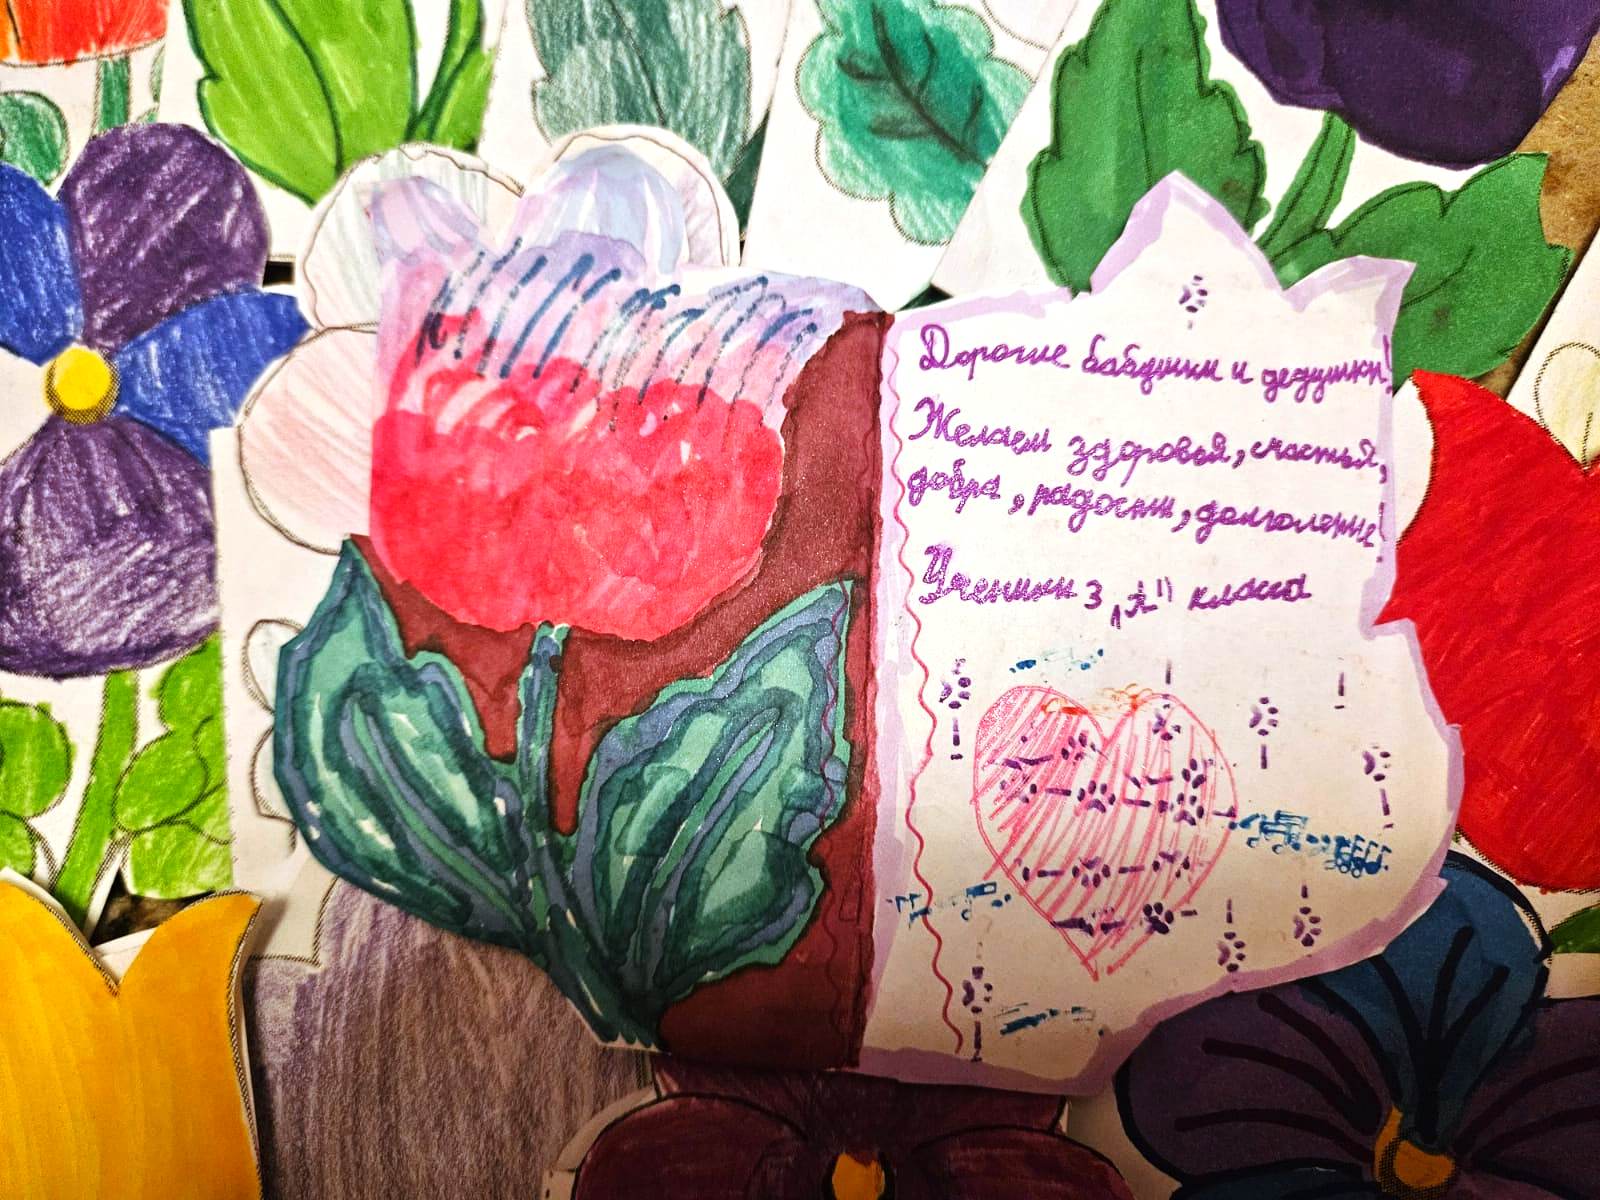 Дорогие бабушки и дедушки!
Желаем здоровья, счастья,
добра, радости, долголетие!
Ученики 3 "А" класса